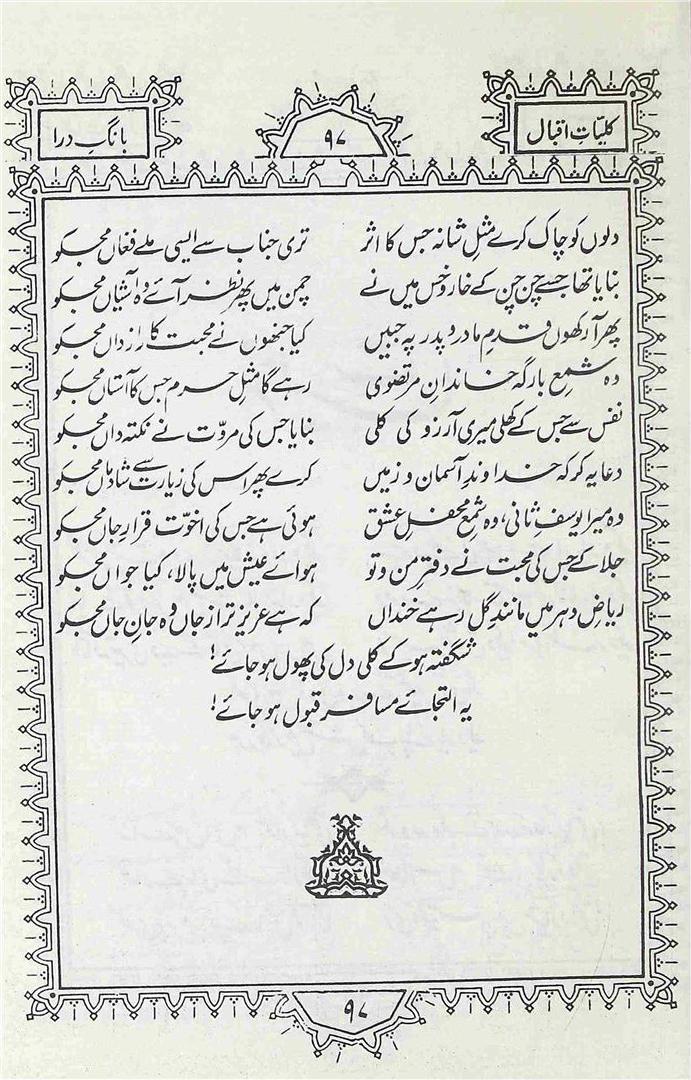 کلیاتِ اقبال
۹۷
بانگِ درا
دلوں کو چاک کرے مثلِ شانہ جس کا اثر تری جناب سے ایسی ملے فغاں مجکو
بنایا تھا جسے چن چن کے خار و خس میں نے چمن میں پھر نظر آئے وہ آشیاں مجکو
پھر آ رکھوں قدمِ مادر و پدر پہ جبیں کیا جنھوں نے محبت کا رازداں مجکو
وہ شمعِ بارگہِ خاندانِ مرتضوی رہے گا مثلِ حرم جس کا آستاں مجکو
نفس سے جس کے کھلی میری آرزو کی کلی بنایا جس کی مروّت نے نکتہ داں مجکو
دعا یہ کر کہ خداوندِ آسمان و زمیں کرے پھر اس کی زیارت سے شادماں مجکو
وہ میرا یوسفِ ثانی، وہ شمعِ محفلِ عشق ہوئی ہے جس کی اخوّت قرارِ جاں مجکو
جلا کے جس کی محبت نے دفترِ من و تو ہوائے عیش میں پالا، کیا جواں مجکو
ریاضِ دہر میں مانندِ گل رہے خنداں کہ ہے عزیز تر از جاں وہ جانِ جاں مجکو
شگفتہ ہو کے کلی دل کی پھول ہو جائے!
یہ التجائے مسافر قبول ہو جائے!
۹۷